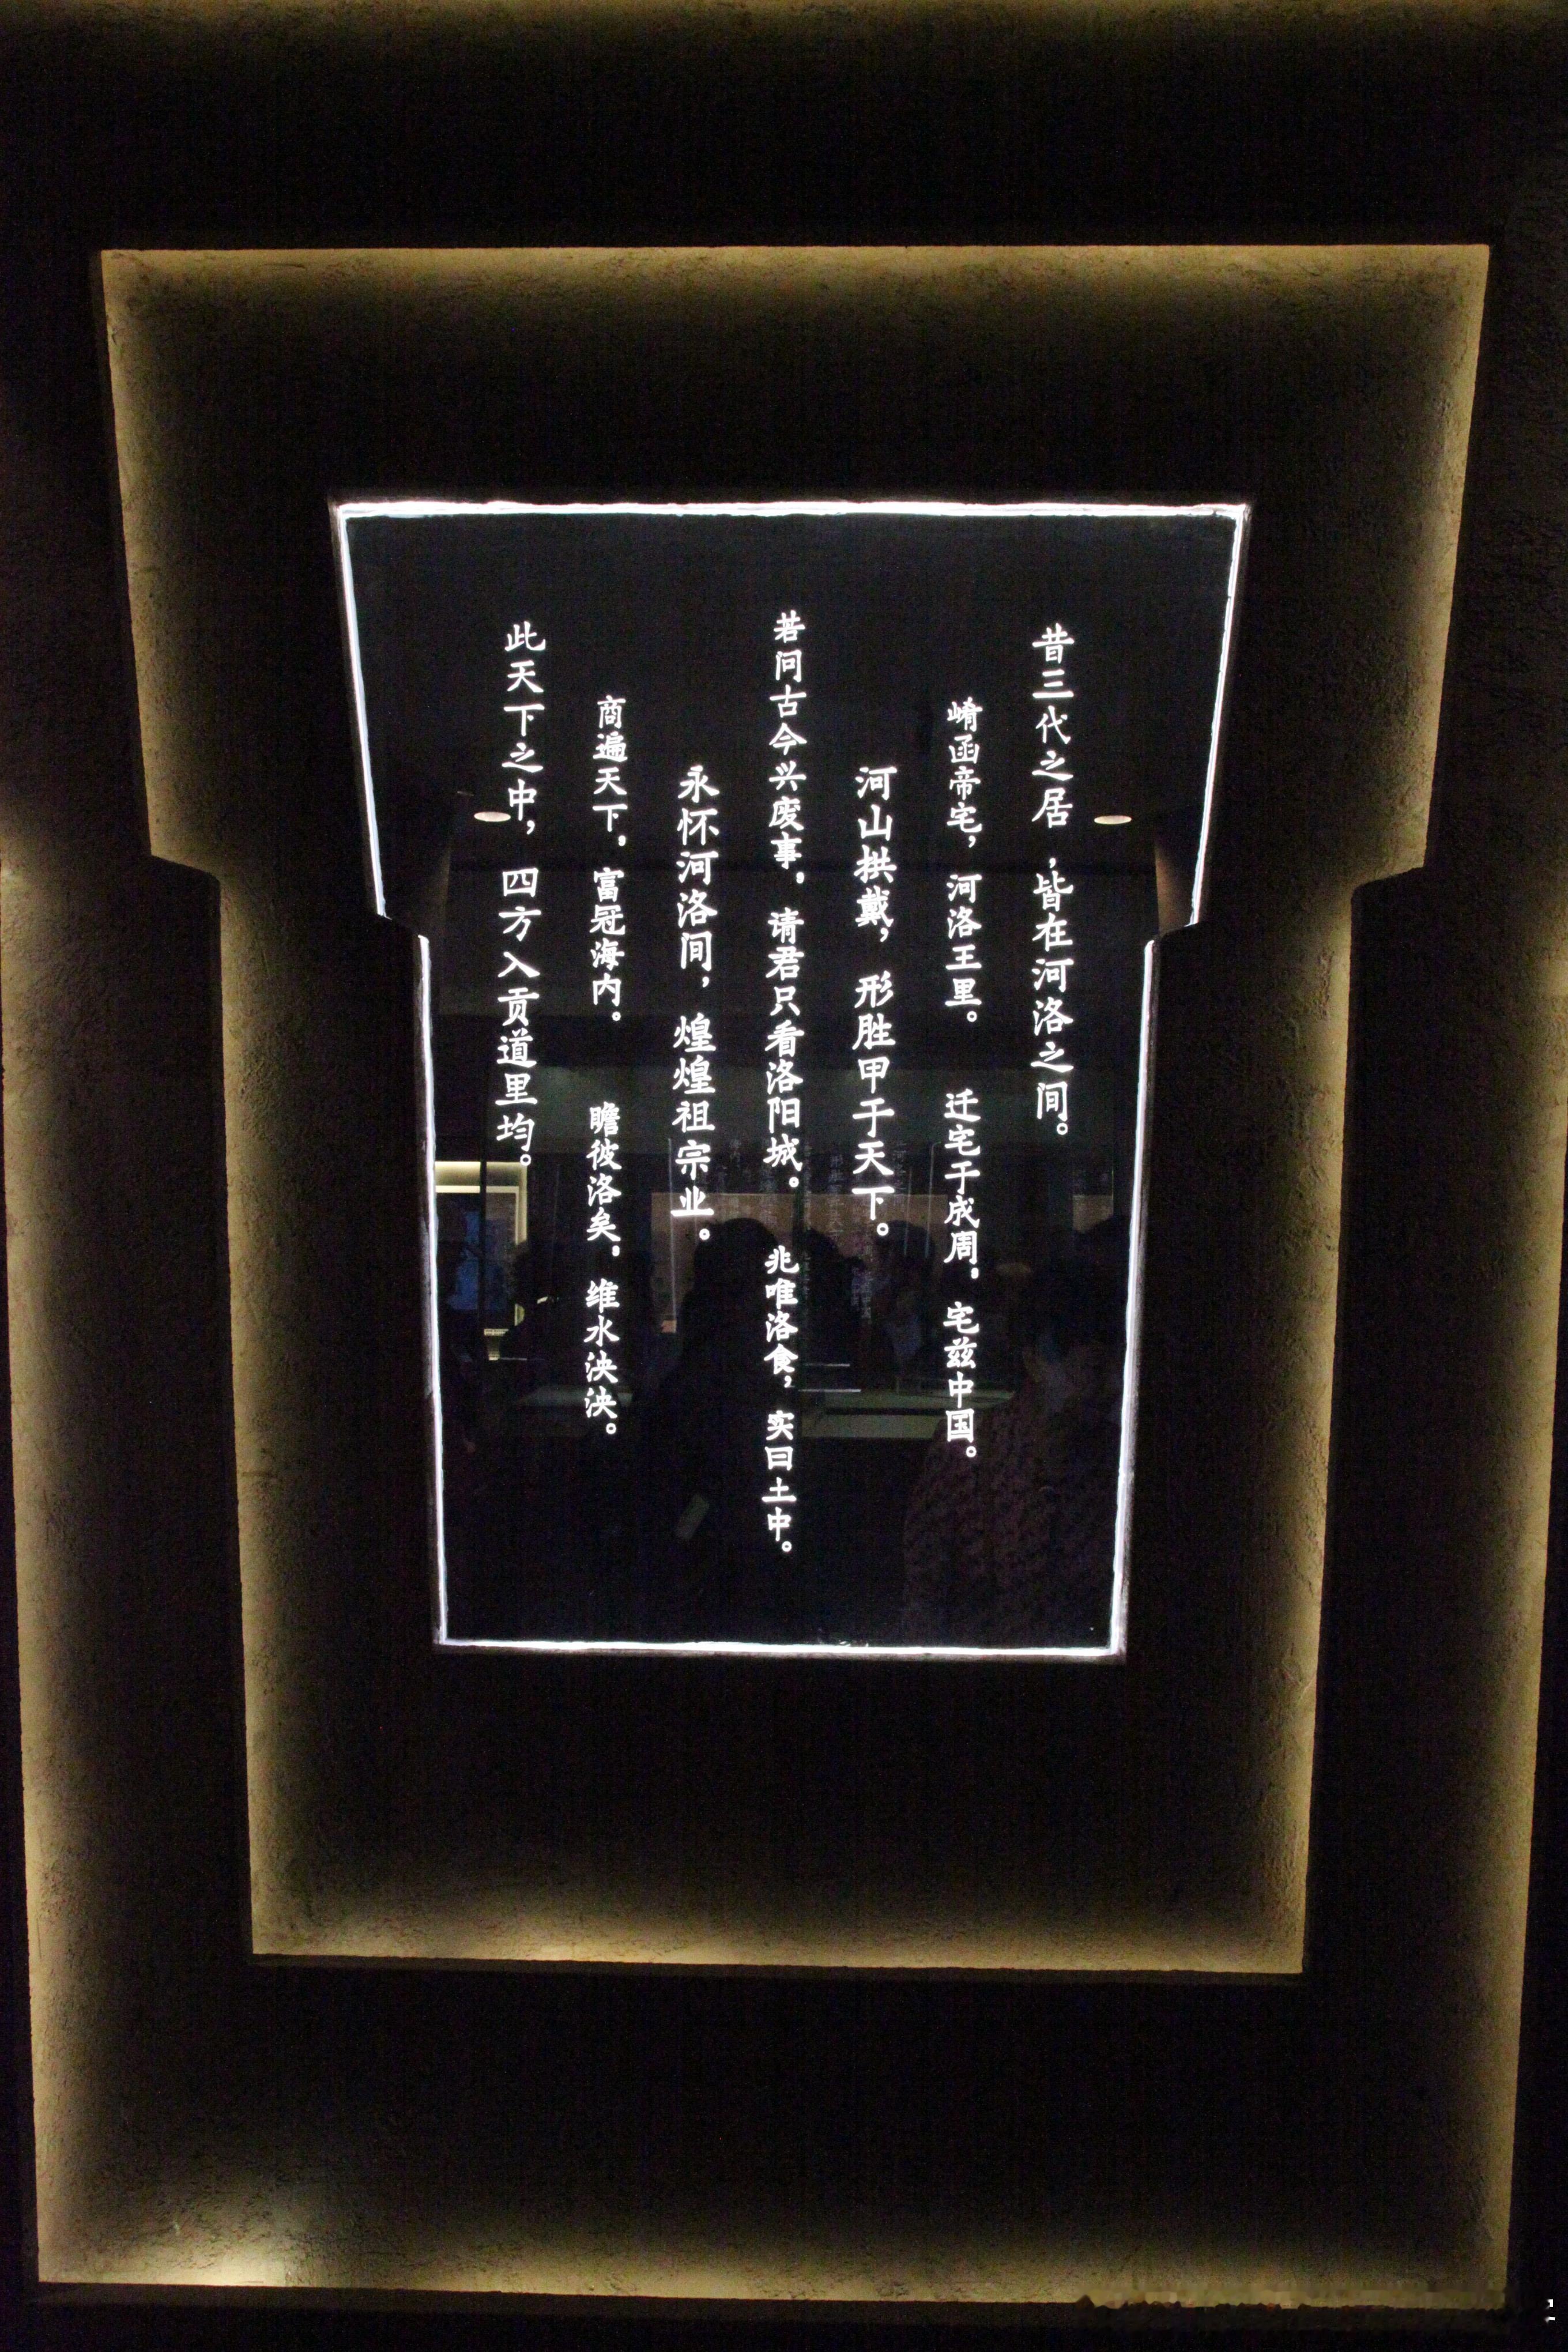 昔三代之居，皆在河洛之间。
崤函帝宅，河洛王里。 迁宅于成周，宅兹中国。
河山拱戴，形胜甲于天下。
若问古今兴废事，请君只看洛阳城。 兆唯洛食，实曰土中。
永怀河洛间，煌煌祖宗业。
商遍天下，富冠海内。 瞻彼洛矣，维水泱泱。
此天下之中，四方入贡道里均。